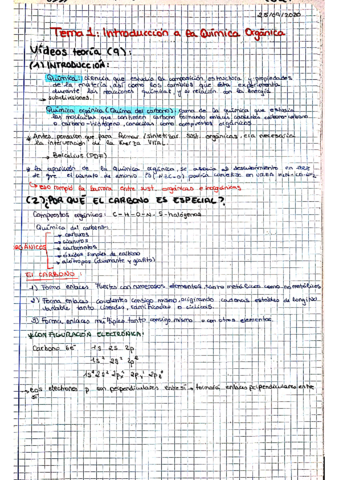 25/09/2020
Tema 1: Introducción a la Química Orgánica
Vídeos teoría (9):
(1) INTRODUCCIÓN:
Química: ciencia que estudia la composición, estructura y propiedades
de la materia, así como los cambios que ésta experimenta
durante las reacciones químicas y su relación con la energía
→ subdivisiones.
Química orgánica (Química del carbono): rama de la química que estudia
las moléculas que contienen carbono formando enlaces covalentes carbono-carbono
o carbono-hidrógeno, conocidas como compuestos orgánicos.
Antes pensaban que para formar (sintetizar) sust. orgánicas era necesaria
la intervención de la Fuerza VITAL.
→ Berzelius (PDF)
La aparición de la química orgánica se asocia al descubrimiento en
de que el cianato de amonio podía convertirse en UREA
→ Eso rompió la barrera entre sust. orgánicas e inorgánicas
(2) ¿POR QUÉ EL CARBONO ES ESPECIAL?
Compuestos orgánicos: C-H-O-N-S-halógenos
Química del carbono:
→ carburos
→ cianuros
INORGÁNICOS → carbonatos
→ óxidos simples de carbono
→ alótropos (diamante y grafito)
EL CARBONO:
1) Forma enlaces fuertes con numerosos elementos, tanto metálicos como no metálicos
2) Forma enlaces covalentes consigo mismo, originando cadenas estables de longitud
variable tanto lineales, ramificadas o cíclicas.
3) Forma enlaces múltiples tanto consigo mismo o con otros elementos.
CONFIGURACIÓN ELECTRÓNICA:
Carbono 6e⁻ 1s 2s 2p
1s² 2s² 2p²
1s² 2s² 2px¹ 2py¹ 2pz⁰
→ Los electrones p son perpendiculares entre sí → formarán enlaces perpendiculares entre
sí.